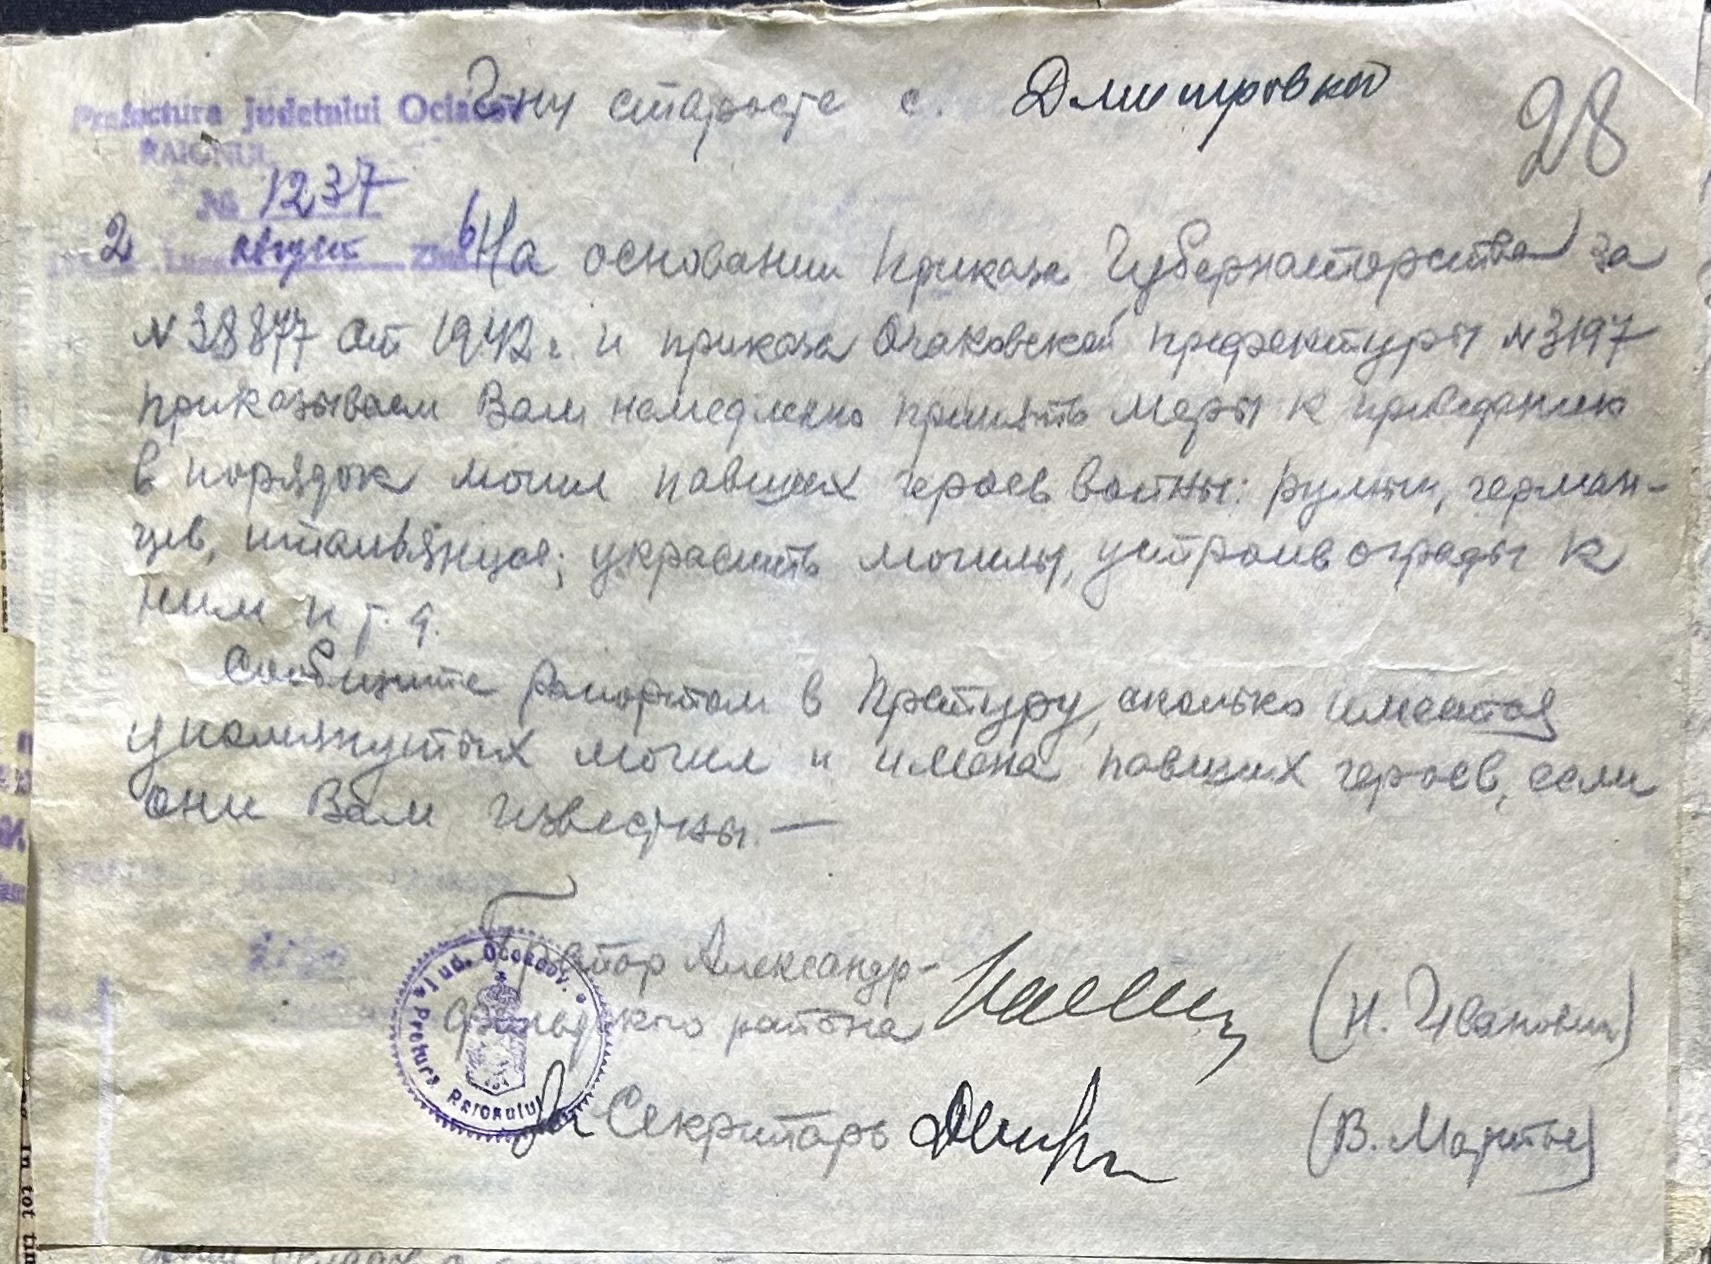 Г-ну старосте с. Дмитровки
28
Prefectura Judetului Ociacov
RAIONUL
№ 1237
2 август 6
На основании приказа Губернаторства за
N 38877 от 1942 г. и приказа Очаковской префектуры N 3197
приказываем Вам немедленно принять меры к приведению
в порядок могил павших героев войны: румын, герман-
цев, итальянцев; украсить могилы, устроив ограды к
ним и т. д.
Сообщите рапортом в Претуру, сколько имеется
упомянутых могил и имена павших героев, если
они Вам известны. —
Претор Александр-
фельдского района (Н. Иванович)
За Секретарь (В. )
Jud. Ocakov. Pretura Raionului
in tot